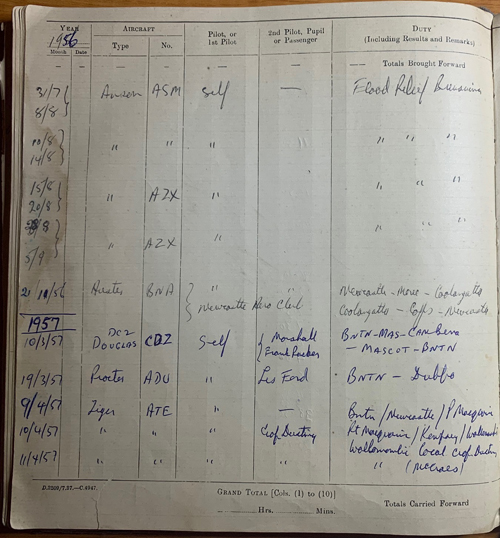 YEAR AIRCRAFT Pilot, or 1st Pilot 2nd Pilot, Pupil or Passenger DUTY (Including Results and Remarks)
1956
Month Date Type No.
— — — — — — — Totals Brought Forward
31/7 Anson ASM Self — Flood Relief
8/8
10/8 " " " " "
14/8
15/8 " AZX " " "
20/8
8/8 " " "
5/9 " AZX "
21/10/56 BNA " " Newcastle - - Coolangatta
Newcastle Aero Club Coolangatta - Coffs - Newcastle
1957
10/3/57 DC2 DOUGLAS CDZ Self Marshall BNTN-MAS-CANBerra
— MASCOT-BNTN
19/3/57 Proctor ADU " Les Ford BNTN — Dubbo
9/4/57 Tiger ATE " — Bntn/Newcastle/P Macquarie
10/4/57 " " " Crop Dusting Pt Macquarie/Kempsey/
11/4/57 " " " Local Crop Dusting
"
D.3259/7.37.—C.6947.
GRAND TOTAL [Cols. (1) to (10)]
Hrs. Mins.
Totals Carried Forward